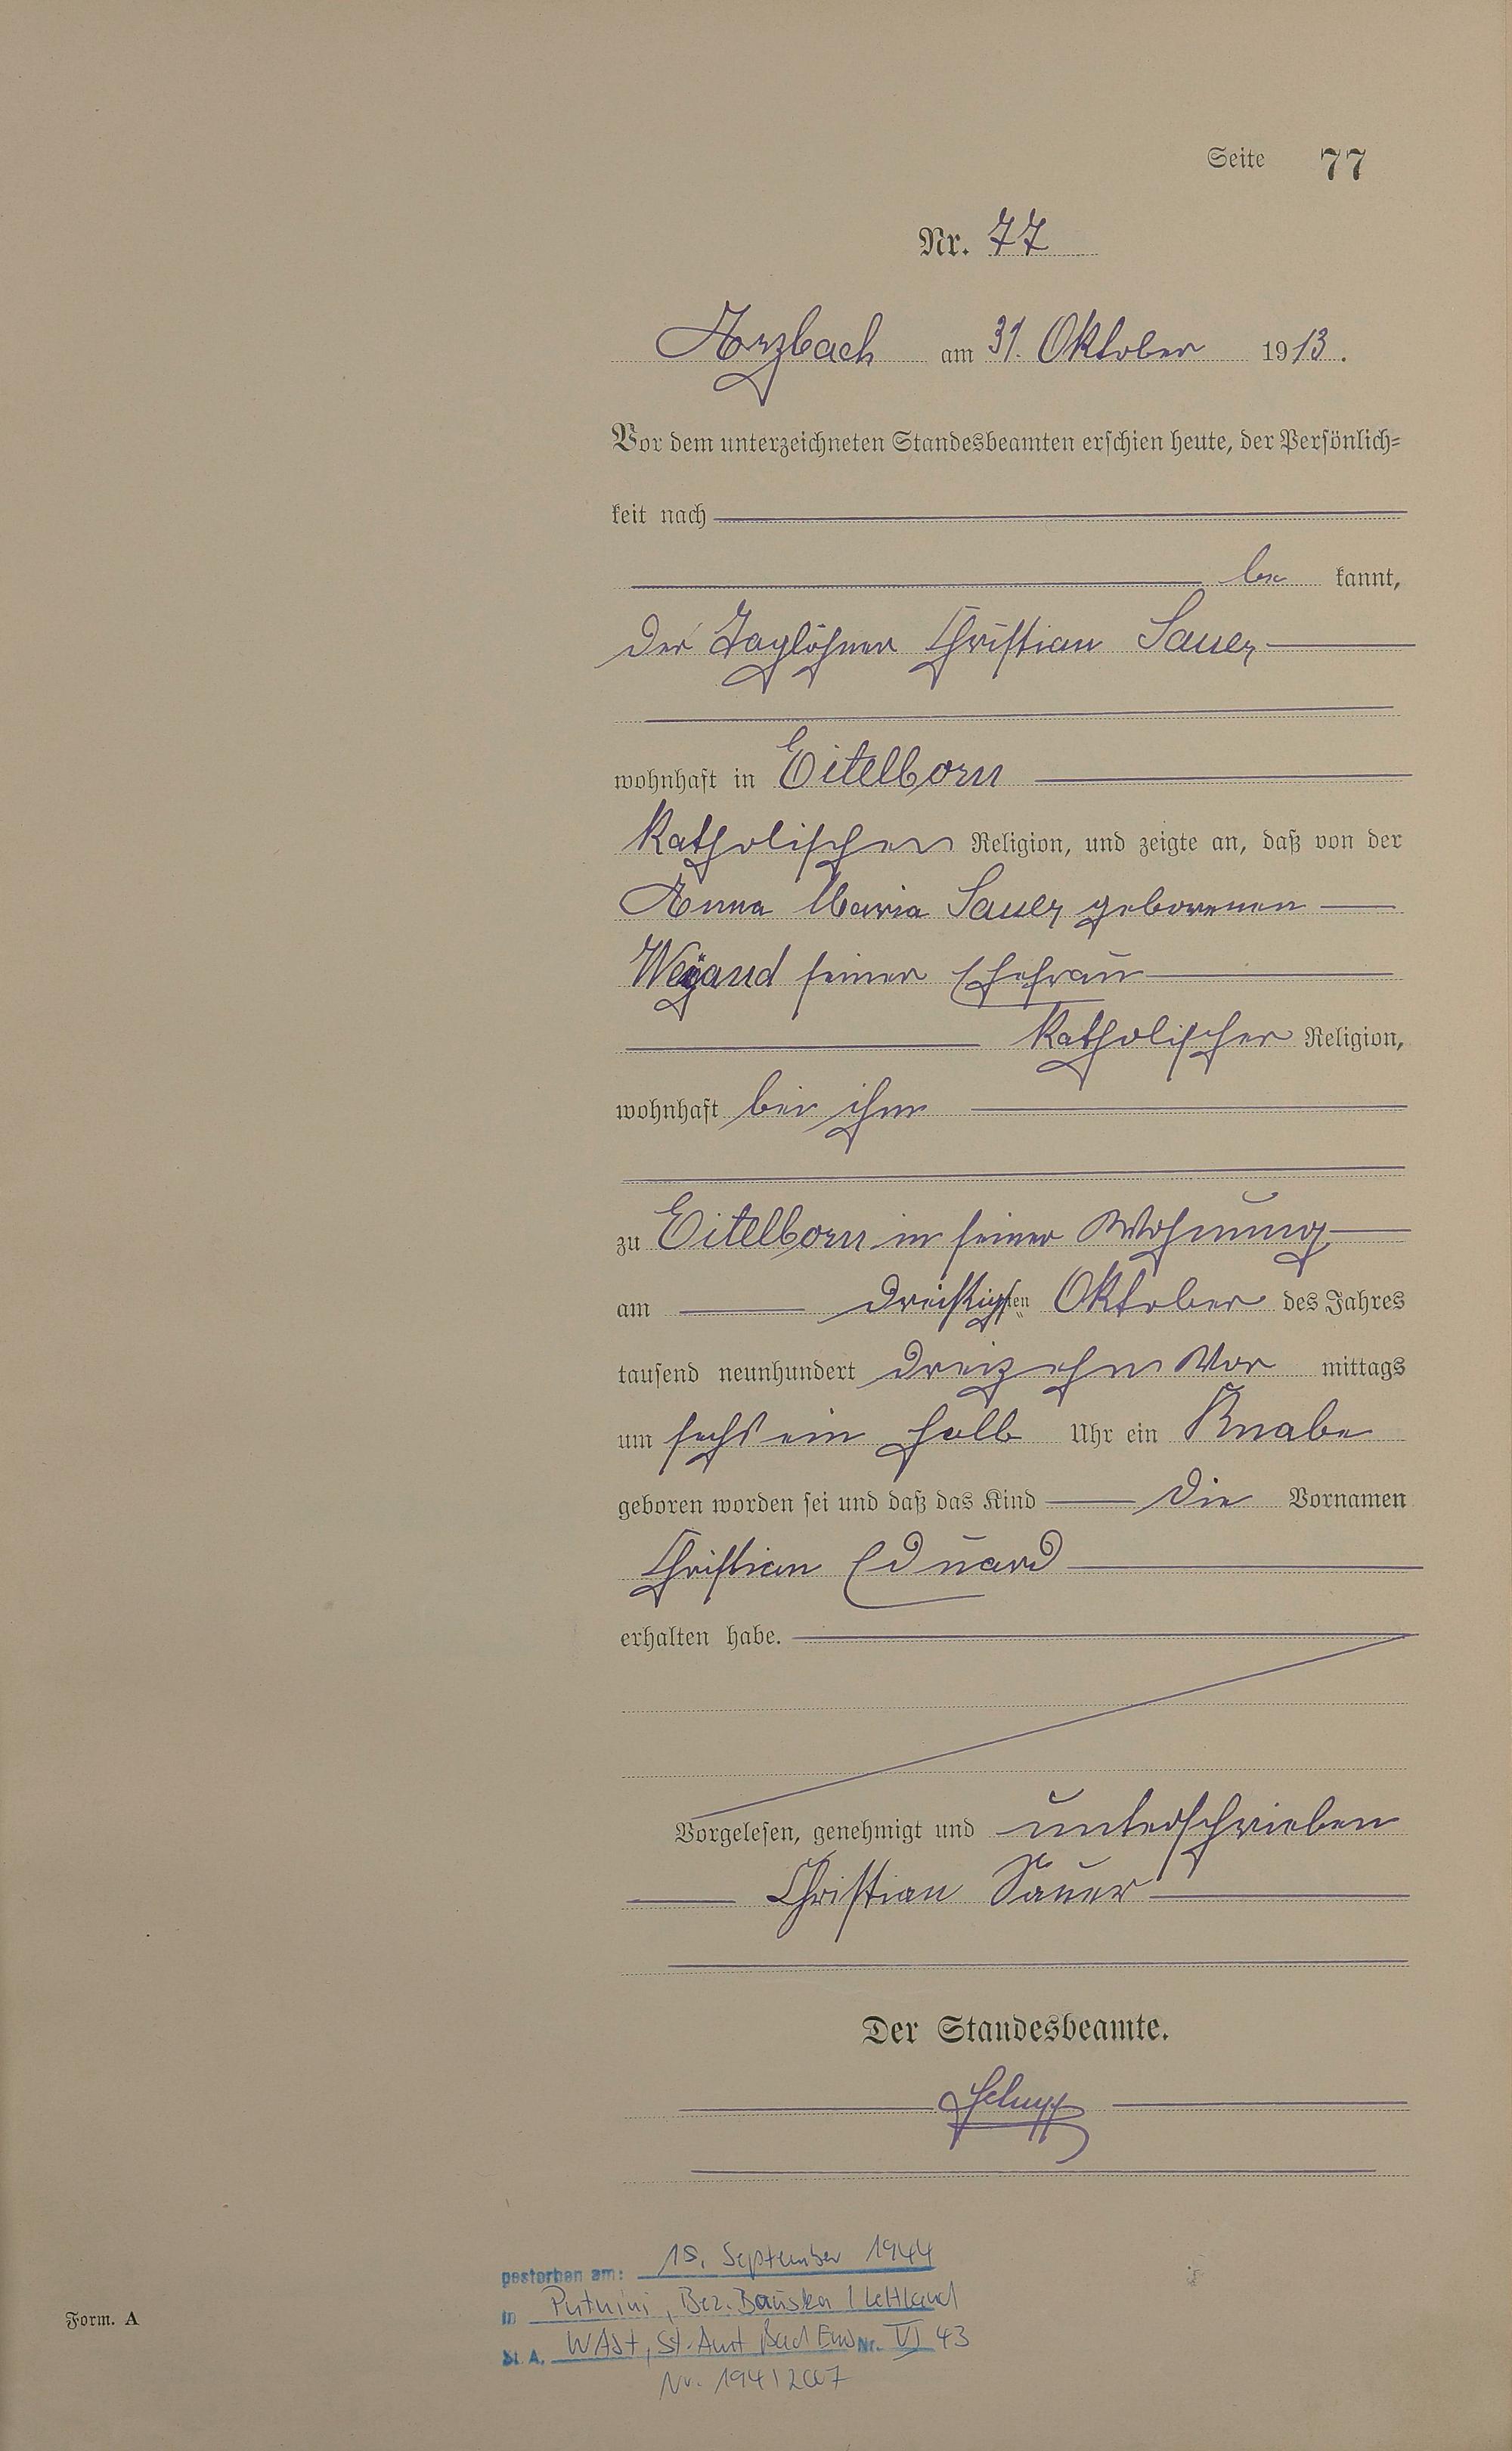 Seite 77
Nr. 77
Arzbach am 31. Oktober 1913.
Vor dem unterzeichneten Standesbeamten erschien heute, der Persönlich-
keit nach
be kannt,
der Taglöhner Christian Sauer
wohnhaft in Eitelborn
katholischer Religion, und zeigte an, daß von der
Anna Maria Sauer geborenen
Weyand seiner Ehefrau
katholischer Religion,
wohnhaft bei ihm
zu Eitelborn in seiner Wohnung
am dreißigsten Oktober des Jahres
tausend neunhundert dreizehn Vor mittags
um sechs ein halb Uhr ein Knabe
geboren worden sei und daß das Kind die Vornamen
Christian Eduard
erhalten habe.
Vorgelesen, genehmigt und unterschrieben
Christian Sauer
Der Standesbeamte.
gestorben am: September 1944
in Putnini, Bez. Bauska / Lettland
St. A. WASt, St.Amt Bad Ems Nr. VI 43
Nr. 194/2007
Form. A